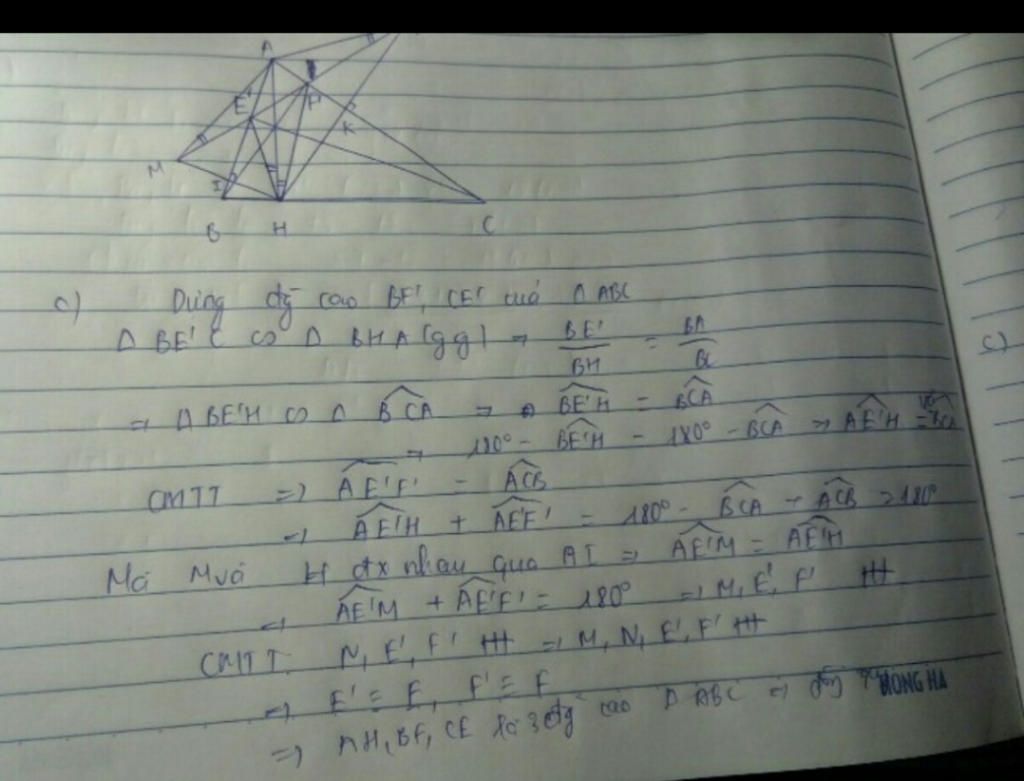 A
E'
F'
K
M
I
B H C
c) Dựng đg cao BF', CE' của Δ ABC
Δ BE'C ∽ Δ BHA (gg) ⇒ BE'/BH = BA/BC
⇒ Δ BE'H ∽ Δ BCA ⇒ BE'H = BCA
⇒ 180° - BE'H = 180° - BCA ⇒ AE'H =
CMTT ⇒ AE'F' = ACB
⇒ AE'H + AE'F' = 180° - BCA + ACB = 180°
Mà M và H đx nhau qua AI ⇒ AE'M = AE'H
⇒ AE'M + AE'F' = 180° ⇒ M, E', F' tH
CMTT N, E', F' tH ⇒ M, N, E', F' tH
⇒ E' ≡ E, F' ≡ F
⇒ AH, BF, CE là 3 đg cao Δ ABC ⇒
HONG HA
c)